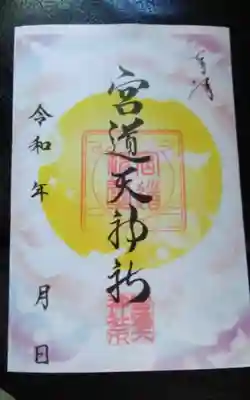 奉拝
宮道天神社
令和年 月 日